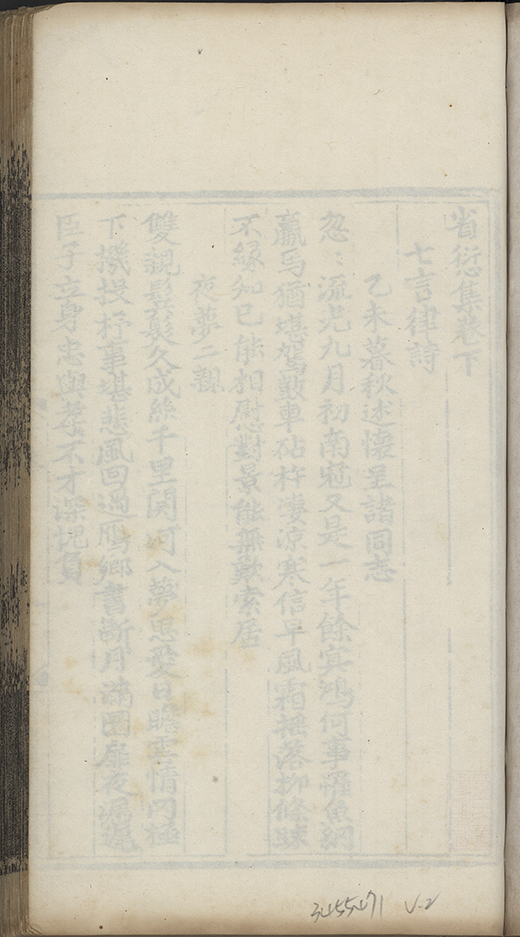 省愆集卷下
七言律詩
乙未暮秋述懷呈諸同志
忽〻流光九月初南冠又是一年餘賓鴻何事罹魚網
羸馬猶堪駕鼓車砧杵凄凉寒信早風霜揺落柳條踈
不緣知已能相慰對景能無歎索居
夜夢二親
雙親鬂髮久成絲千里関河入夢思愛日瞻雲情罔極
下機投杼事堪悲風回過鴈鄉書斷月滿圜扉夜漏遲
臣子立身忠與孝不才深愧負
V-2